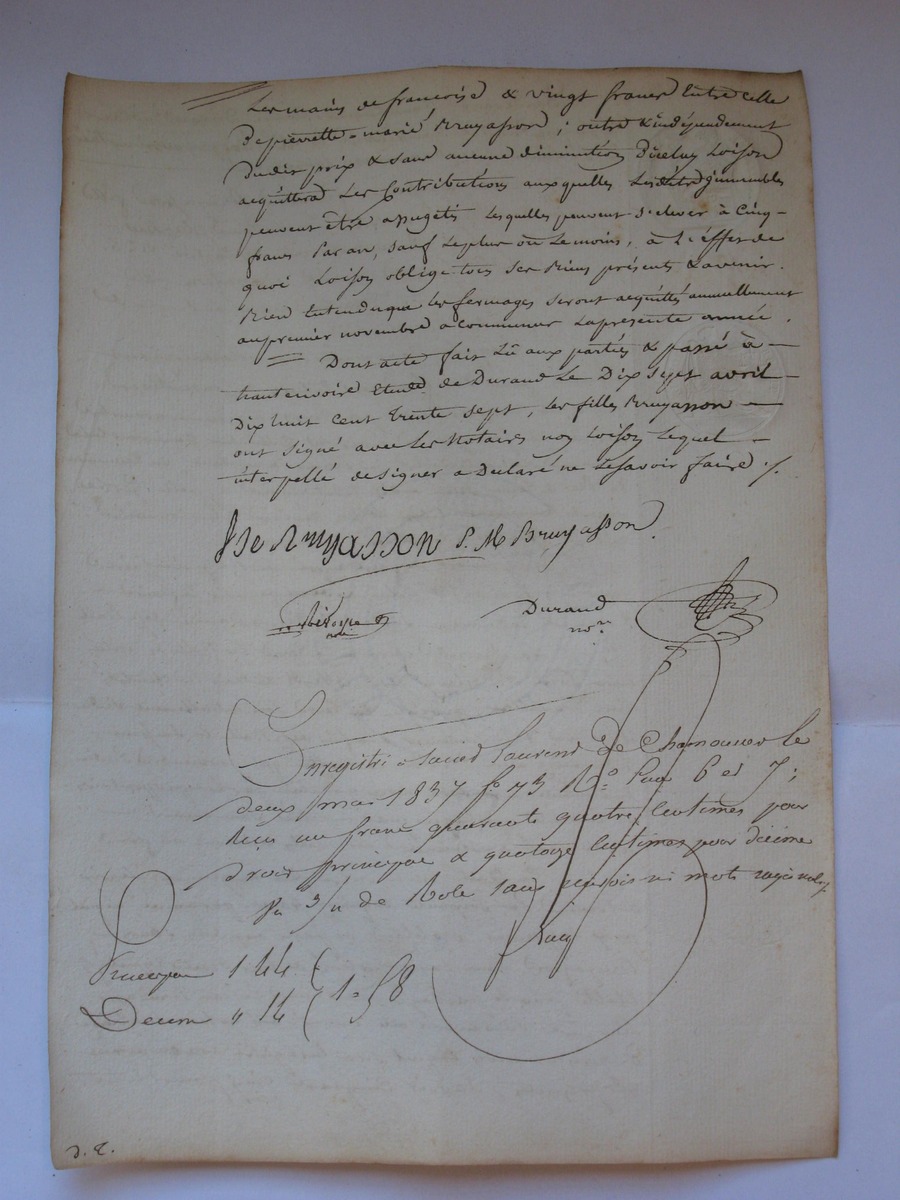 Les mains de francoise & vingt francs Entre celle
De pierrette-marie Bruyasson ; outre & indépendement
Dudit prix & sans aucune diminution D'iceluy Loison
acquittera Les Contributions auxquelles Lesdits immeubles
peuvent être assugetis Lesquelles peuvent s'elever à Cinq
francs Par an, sauf Le plus ou Le moins, à L'éffet de
quoi Loison oblige tous Ses Biens présents & avenir.
Bien Entendu que les fermages seront acquittés annuellement
au premier novembre a commencer La présente année.
Dont acte fait Lû aux parties & passé à
hauterivoire Etude de Durand Le Dix Sept avril
Dix huit Cent trente Sept, les filles Bruyasson
ont Signé avec Les Notaires non Loison Lequel
interpellé de signer a Déclaré ne Le savoir faire ./.
fse Bruyasson P. M Bruyasson
Durand
nore
Enregistré a Saint Laurent De Chamousset le
deux mai 1837 fo 73 Ro. Case 6 et 7 ;
Reçu un franc quarante quatre Centimes pour
droit principal & quatorze Centimes pour décime
de Role sans renvois ni mots rayés nuls
Principal 1 44
1 = 58
Decime " 14